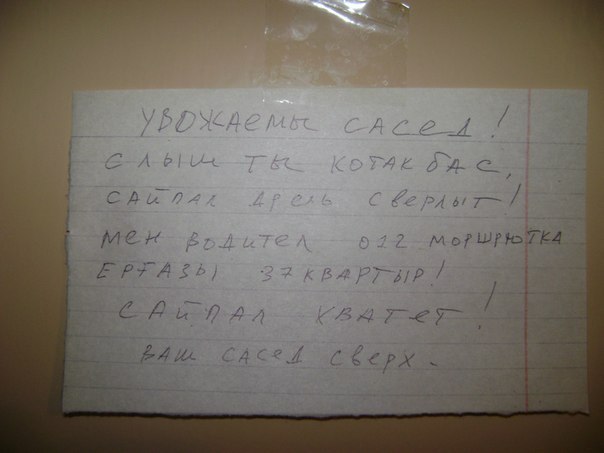 УВОЖАЕМЫ САСЕД!
СЛЫШ ТЫ КОТАКБАС,
САЙПАЛ ДРЕЛЬ СВЕРЛЫТ!
МЕН ВОДИТЕЛ 012 МОРШРЮТКА
ЕРҒАЗЫ 37 КВАРТЫР!
САЙПАЛ ХВАТЕТ!
ВАШ САСЕД СВЕРХ.